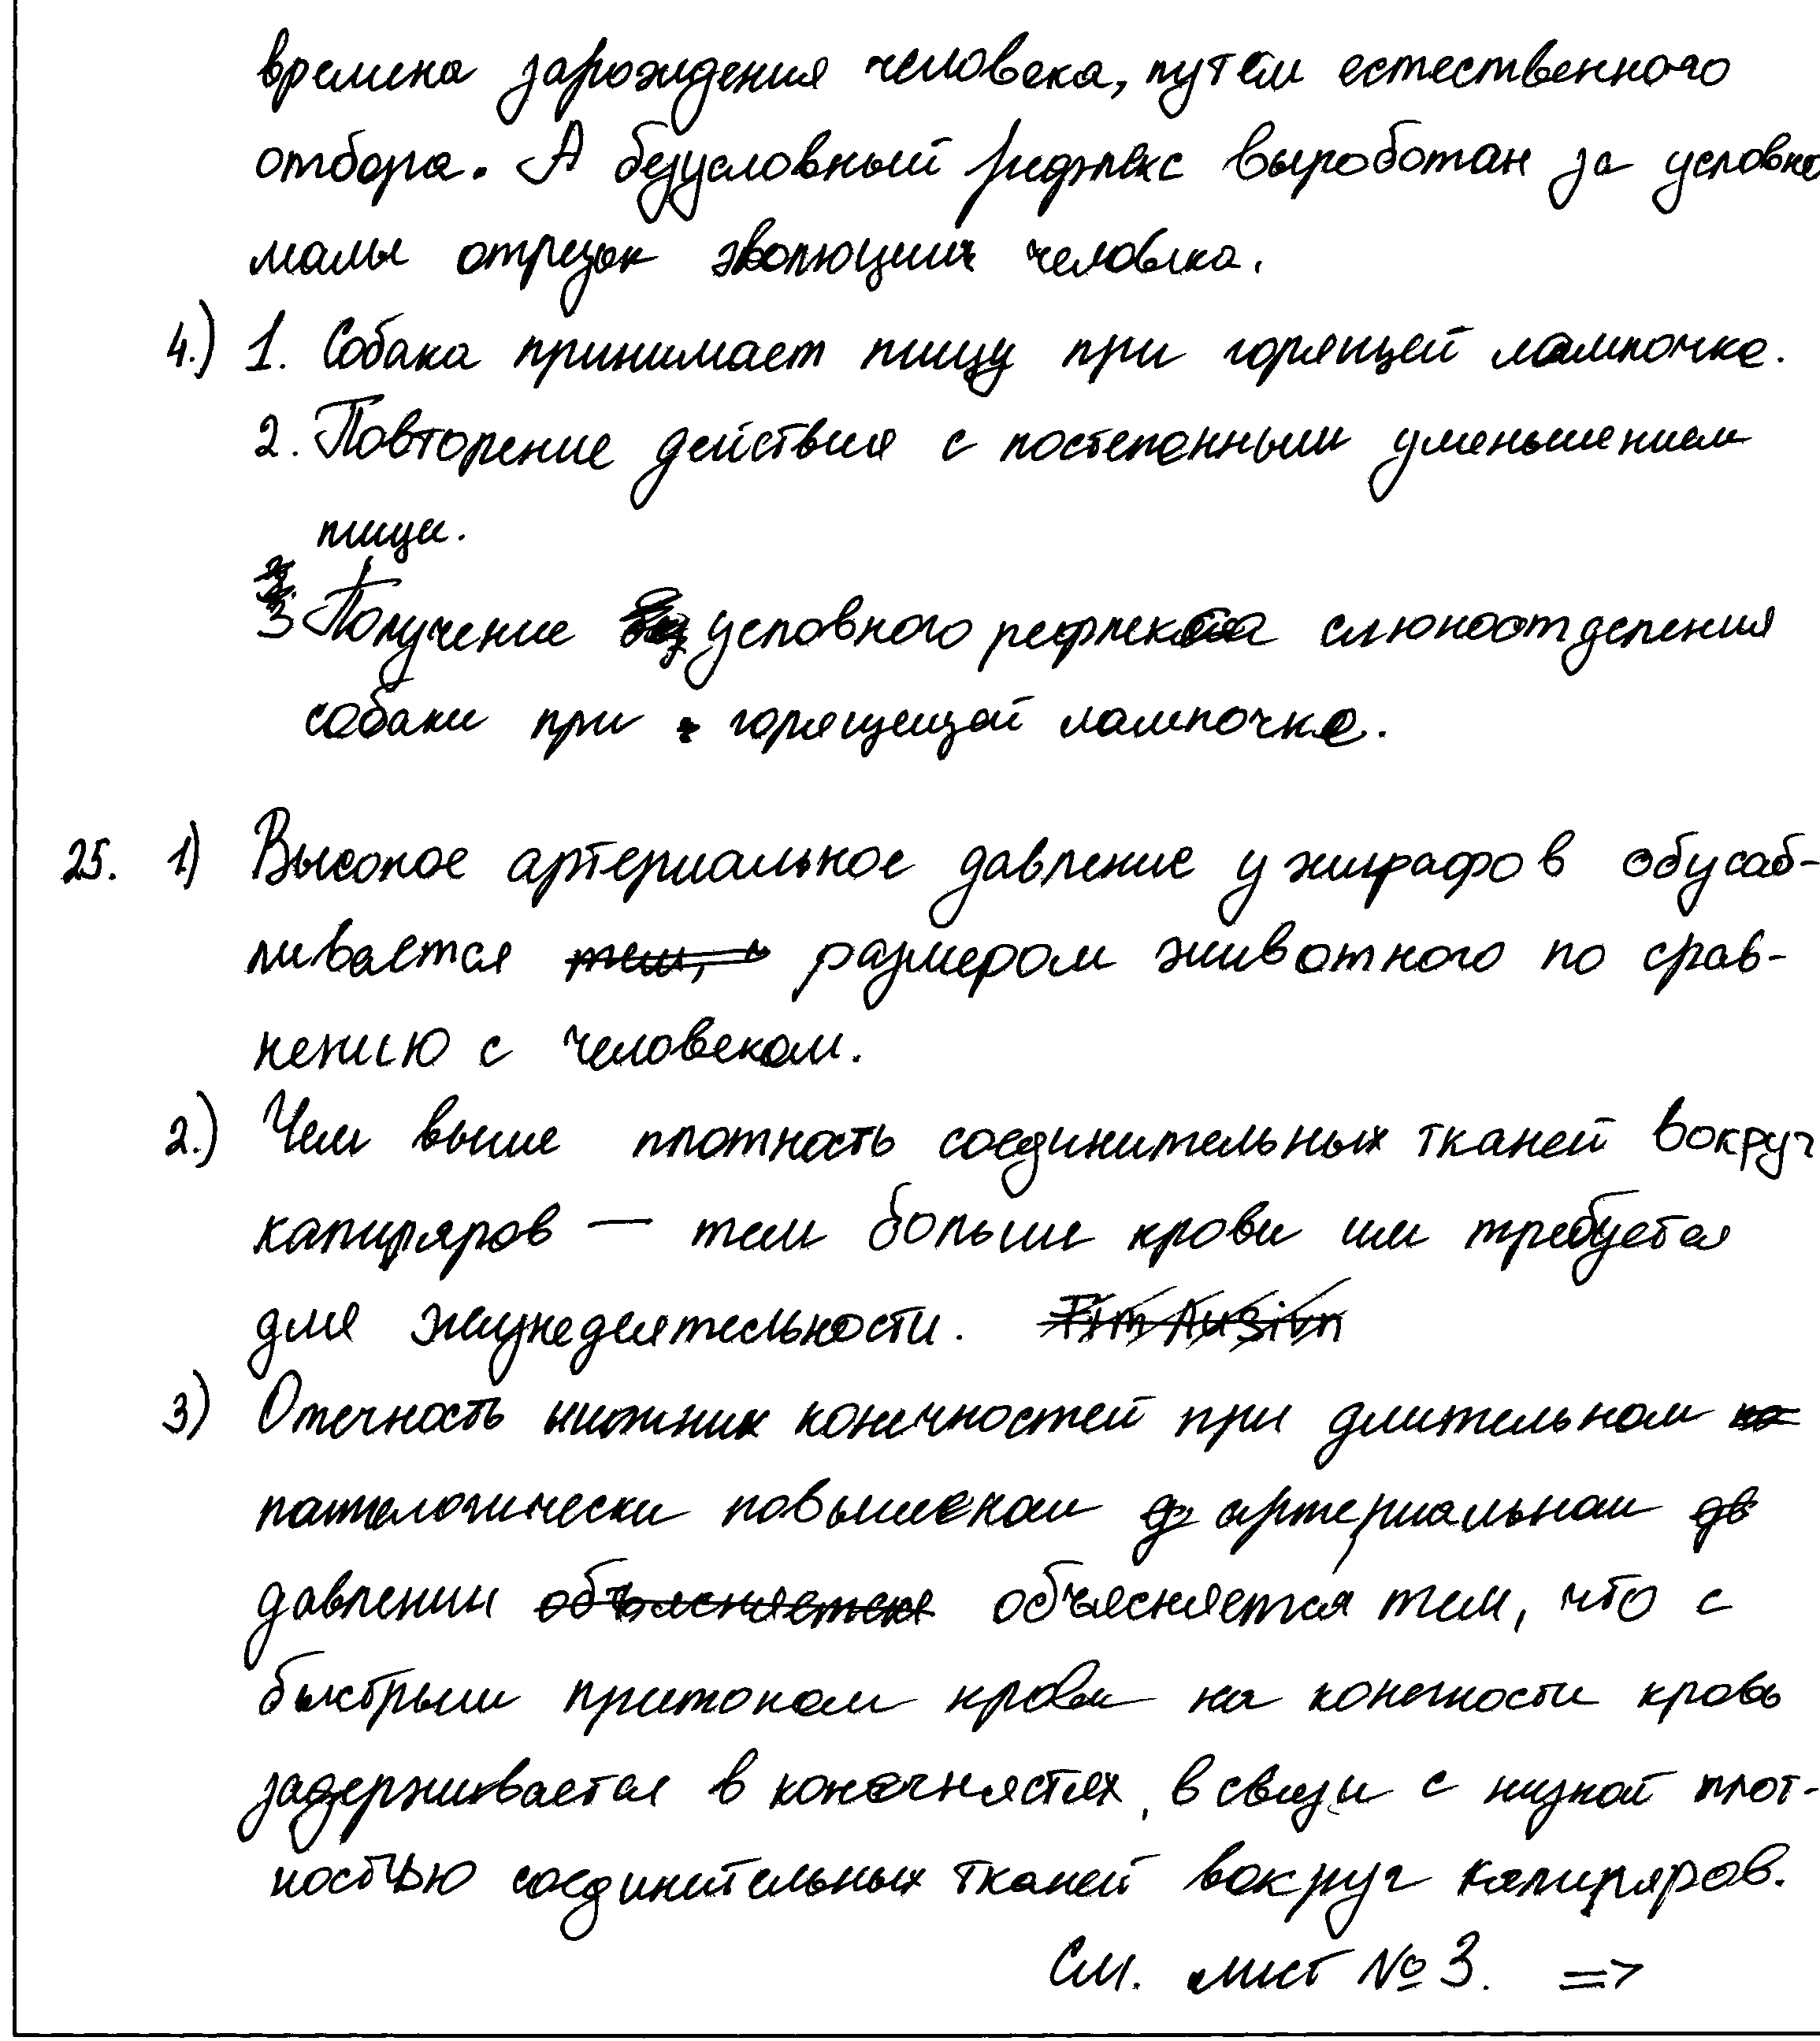 времена зарождения человека, путём естественного
отбора. А безусловный рефлекс выроботан за условно
малы отрезок эволюции человека.
4.) 1. Собака принимает пищу при горящей лампочке.
2. Повторение действия с постепенным уменьшением
пищи.
3 Получение условного рефлекса слюноотделения
собаки при горящещей лампочке.
25. 1) Высокое артериальное давление у жирафов обусаб-
ливается размером животного по срав-
нению с человеком.
2.) Чем выше плотность соединительных тканей вокруг
капиряров — тем больше крови им требуется
для жизнедеятельности.
3) Отечность нижних конечностей при длительном
патологически повышеном артериальном
давлении объясняется тем, что с
быстрым притоком крови на конечности кровь
задерживается в конечностях, в связи с низкой плот-
ностью соединительных тканей вокруг капиряров.
См. лист № 3. =>